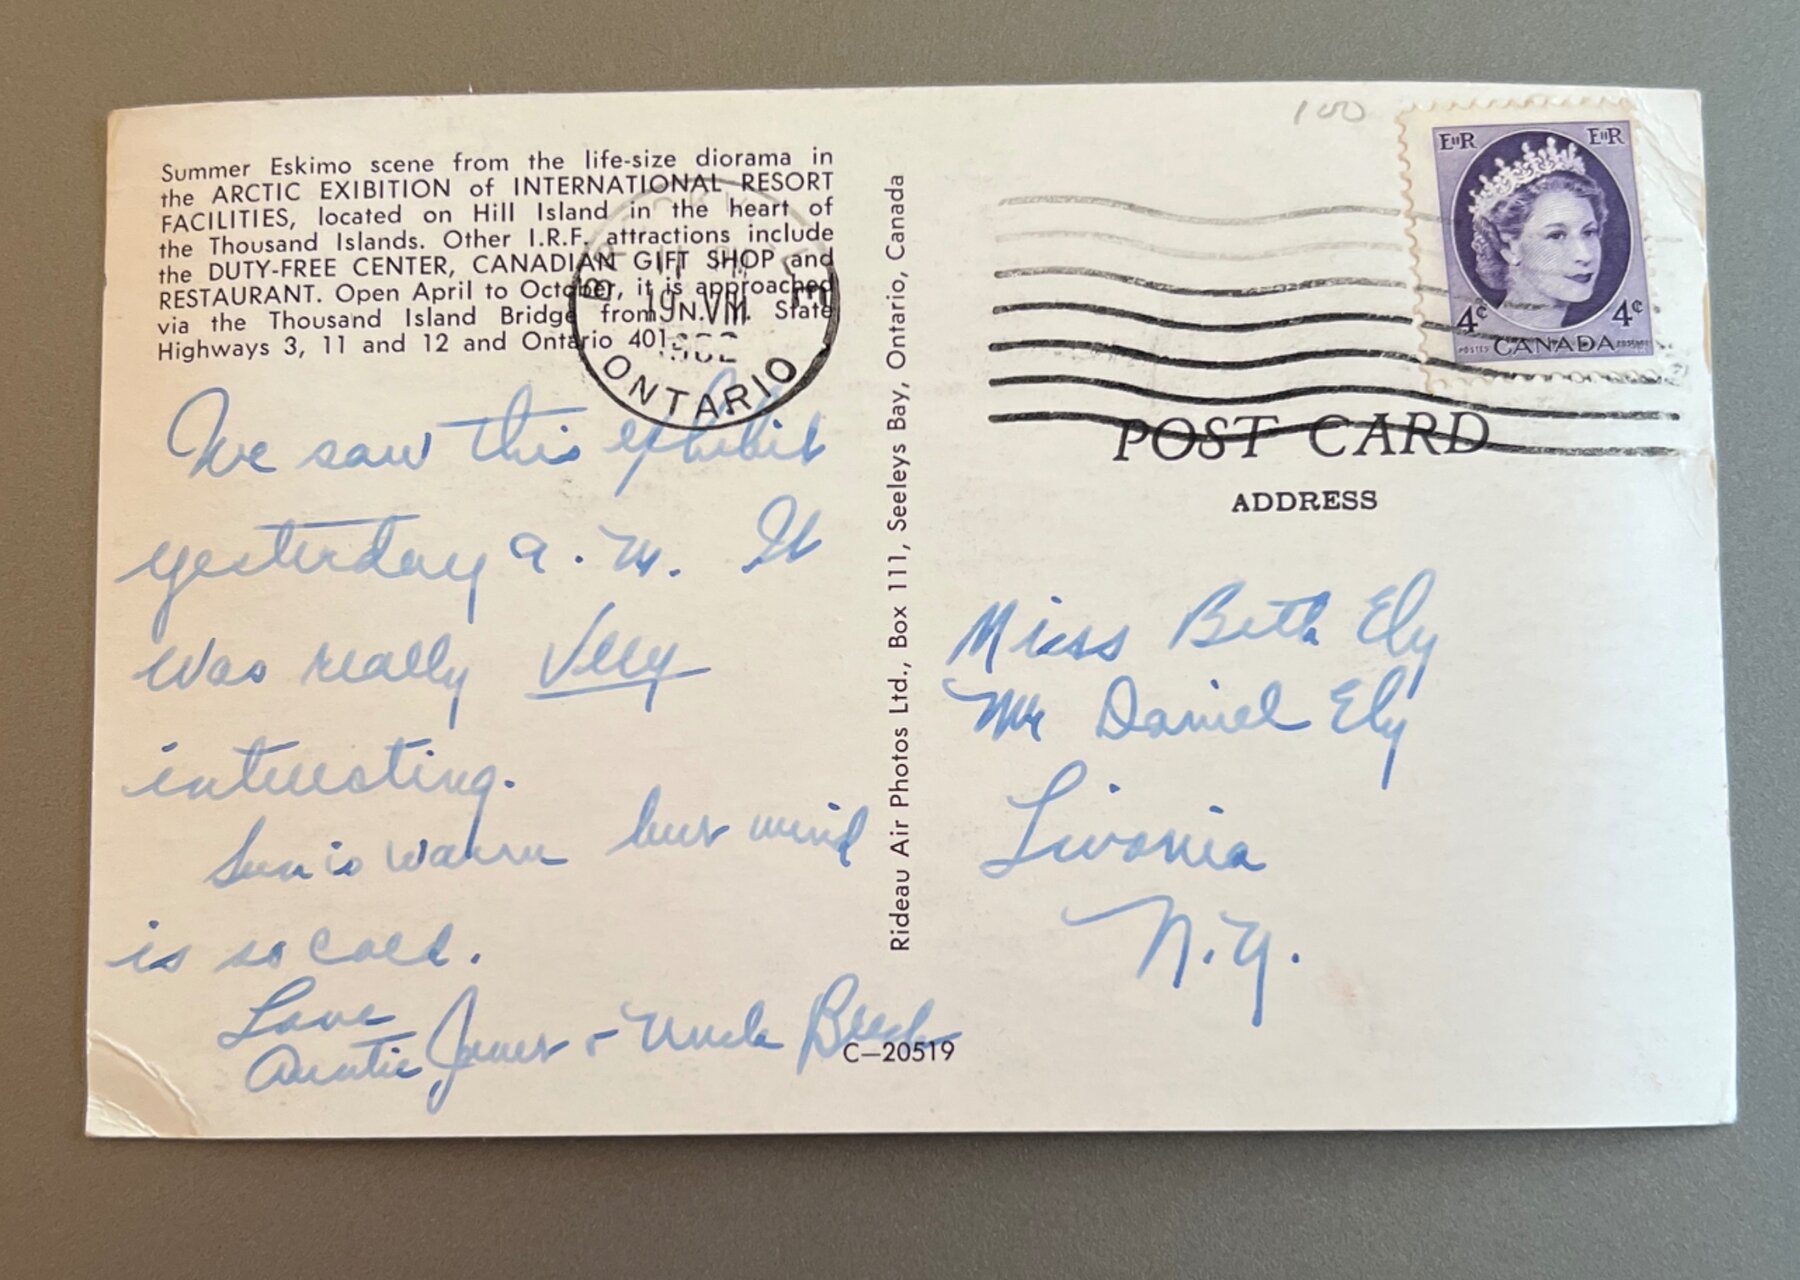 Summer Eskimo scene from the life-size diorama in
the ARCTIC EXIBITION of INTERNATIONAL RESORT
FACILITIES, located on Hill Island in the heart of
the Thousand Islands. Other I.R.F. attractions include
the DUTY-FREE CENTER, CANADIAN GIFT SHOP and
RESTAURANT. Open April to October, it is approached
via the Thousand Island Bridge from N.Y. State
Highways 3, 11 and 12 and Ontario 401.
ONTARIO
We saw this exhibit
yesterday a.m. It
was really very
interesting.
Sun is warm but wind
is so cold.
Love
Auntie & Uncle
C-20519
Rideau Air Photos Ltd., Box 111, Seeleys Bay, Ontario, Canada
100
EIIR EIIR
4¢ 4¢
POSTES CANADA POSTAGE
POST CARD
ADDRESS
Miss Beth Ely
Mr Daniel Ely
Livonia
N.Y.